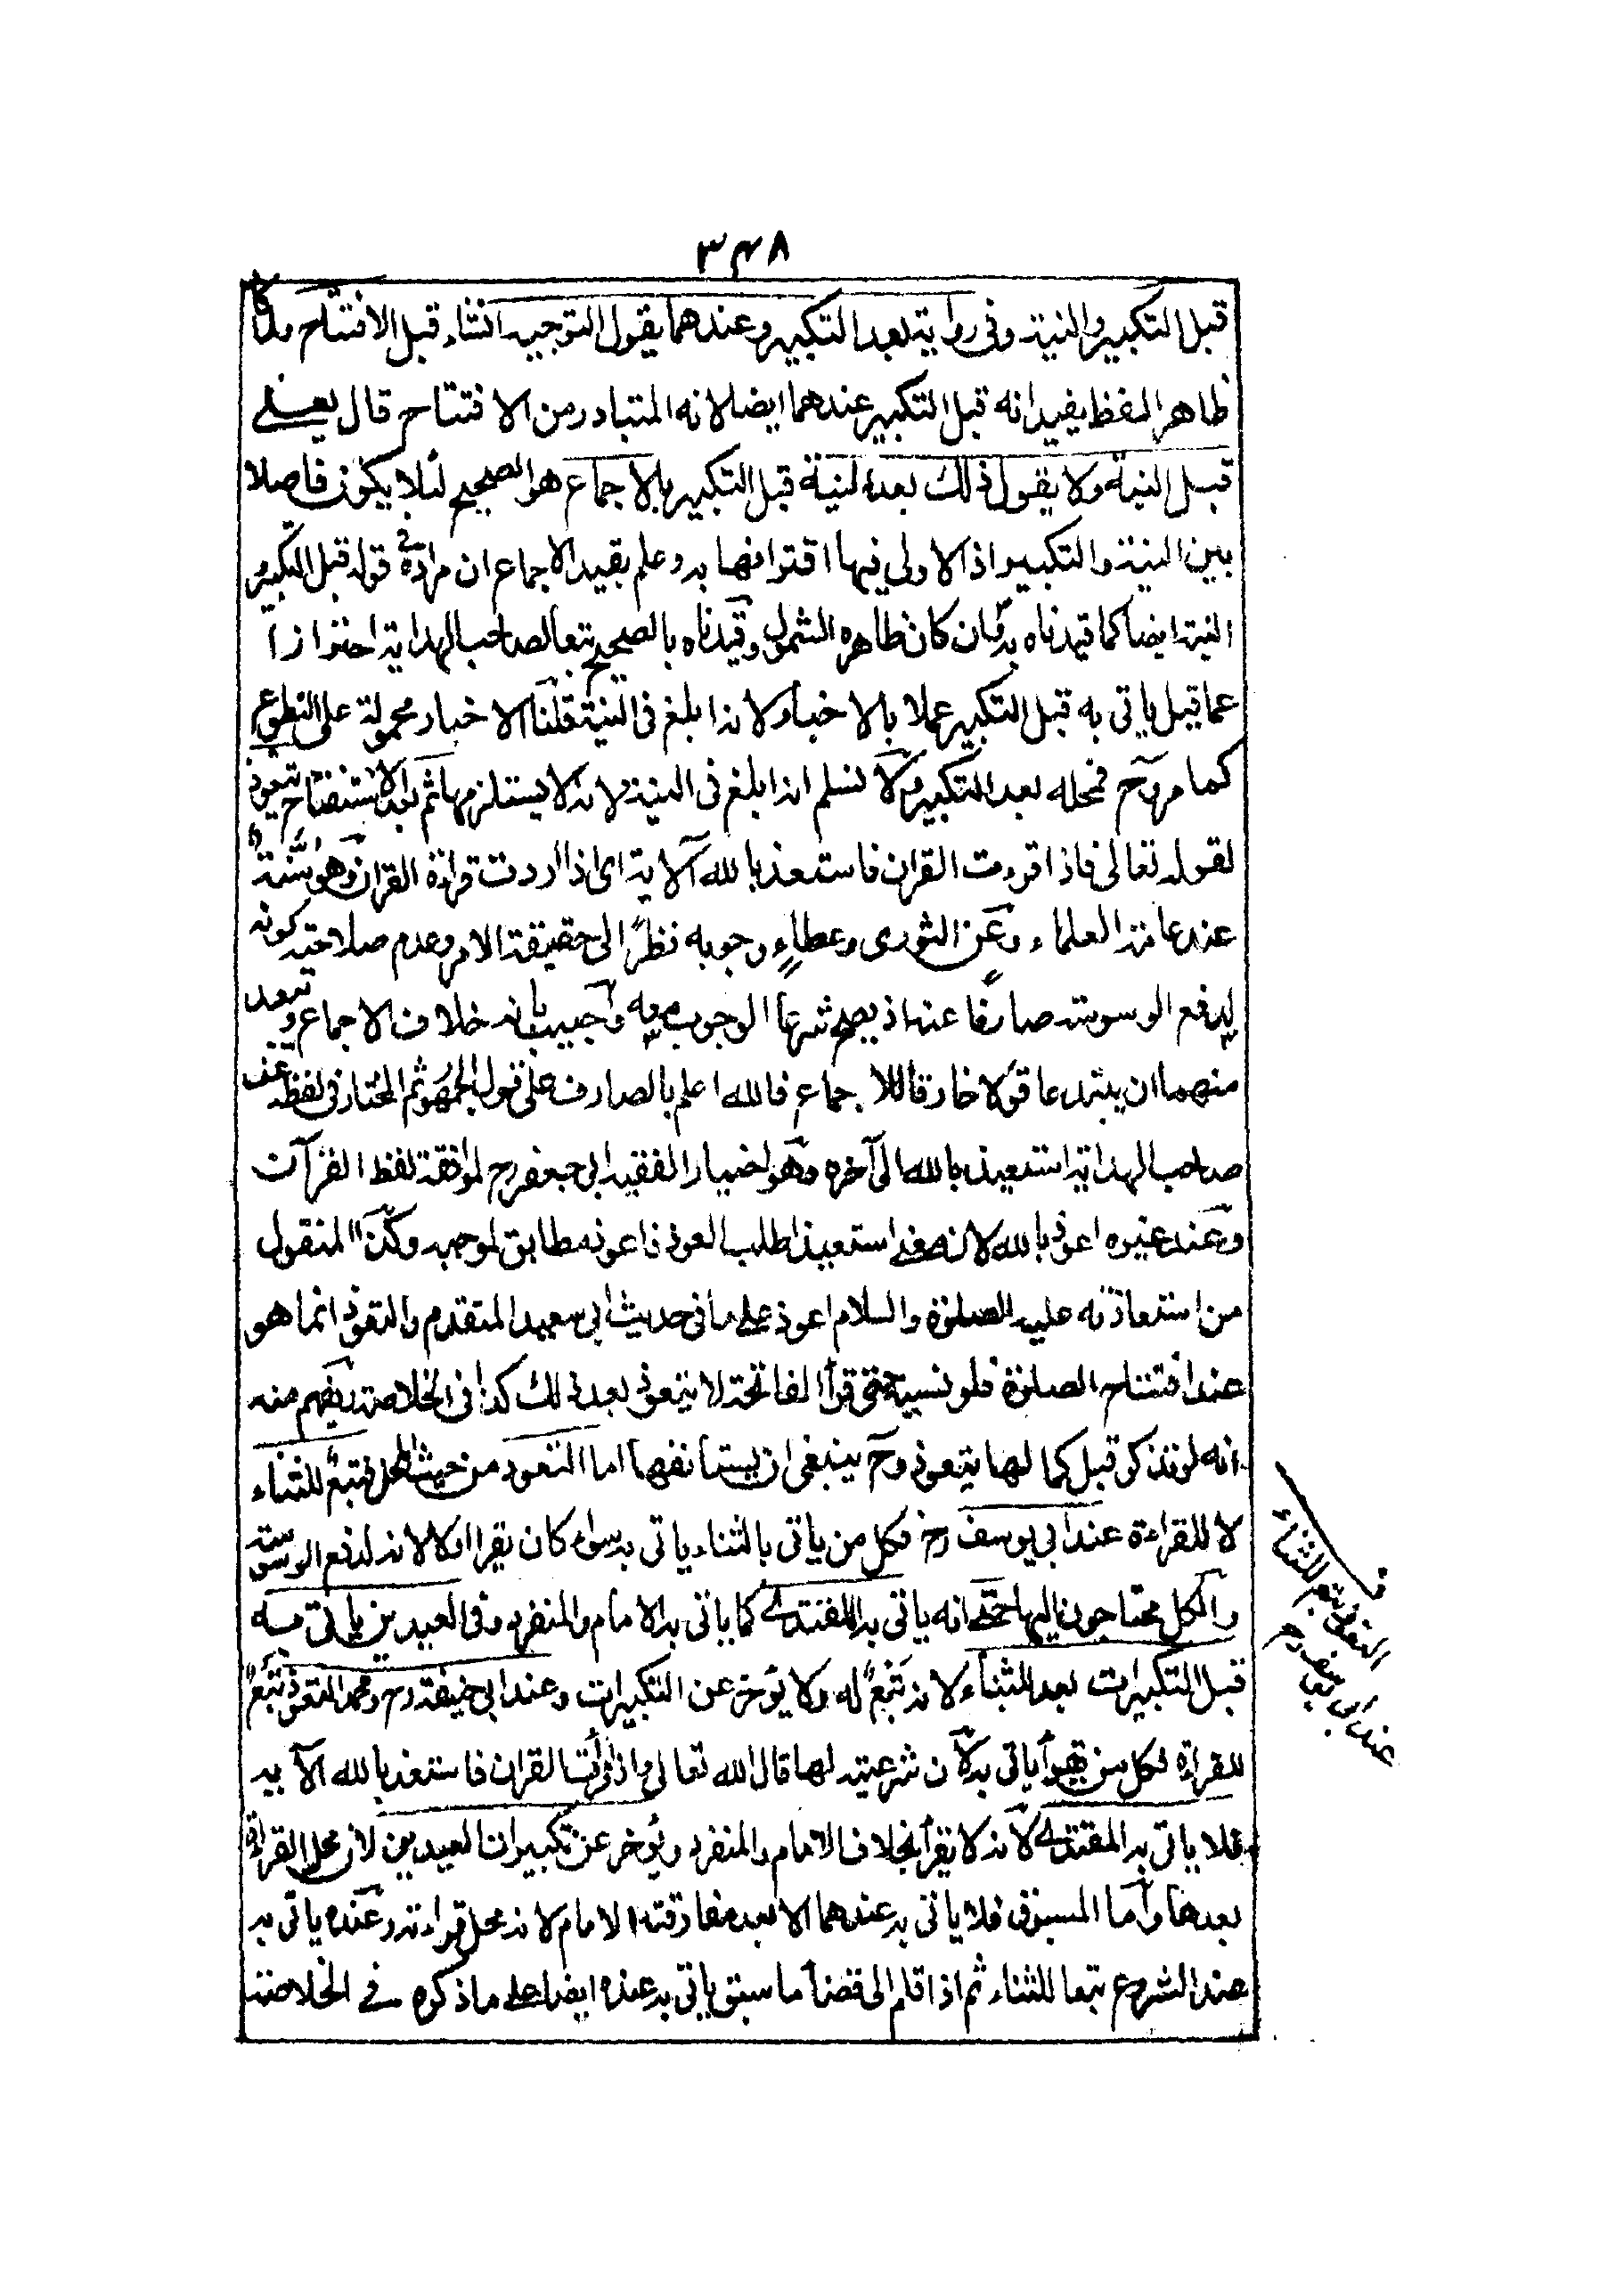 ۳۴۸
قبل التكبير والنية وفى رواية بعد التكبير وعندهما يقول التوجيه اثناء قبل الافتتاح ولما كان
ظاهر اللفظ يفيد انه قبل التكبير عندهما ايضا لانه المتبادر من الافتتاح قال يعنى
قبل النية ولا يقول ذلك بعد النية قبل التكبير بالاجماع هو الصحيح لئلا يكون فاصلا
بين النية والتكبير اذ الاولى فيها اقترانها به وعلم بقيد الاجماع ان مراده فى قوله قبل التكبير
النية ايضا كما قيدناه به وان كان ظاهره الشمول وقيدناه بالصحيح تبعا لصاحب الهداية احترازا
عما قيل ياتى به قبل التكبير عملا بالاخبار ولانه ابلغ فى النية قلنا الاخبار محمولة على التطوع
كما مر وح فمحله بعد التكبير ولا نسلم انه ابلغ فى النية ولانه لا يستلزمها ثم بعد الاستفتاح يتعوذ
لقوله تعالى فاذا قرءت القران فاستعذ بالله الاية اى اذا اردت قراءة القران وهو سنة
عند عامة العلماء وعن الثورى وعطاء وجوبه نظرا الى حقيقة الامر وعدم صلاحية كونه
لدفع الوسوسة صارفا عنه اذ يصح شرعا الوجوب معه واجيب بانه خلاف الاجماع ويبعد
منهما ان يبتدعا قولا خارقا للاجماع فالله اعلم بالصارف على قول الجمهور ثم المختار فى لفظه عند
صاحب الهداية استعيذ بالله الى آخره وهو اختيار الفقيه ابى جعفر رح لموافقة لفظ القرآن
وعند غيره اعوذ بالله لان معنى استعيذ اطلب العوذ فاعوذ مطابق لموجبه وكذا المنقول
من استعاذته عليه الصلوة والسلام اعوذ على ما فى حديث ابى سعيد المتقدم والتعوذ انما هو
عند افتتاح الصلوة فلو نسيه حتى قرأ الفاتحة لا يتعوذ بعد ذلك كذا فى الخلاصة ويفهم منه
انه لو تذكر قبل كمالها يتعوذ وح ينبغى ان يستانفها اما التعوذ من حيث المحل فتبع للثناء
لا للقراءة عند ابى يوسف رح فكل من ياتى بالثناء ياتى به سواء كان يقرا اولا لانه لدفع الوسوسة
والكل محتاجون اليها حتى انه ياتى به المقتدى كما ياتى به الامام والمنفرد وفى العيدين ياتى به
قبل التكبيرات بعد الثناء لانه تبع له ولا يؤخر عن التكبيرات وعند ابى حنيفة رح ومحمد التعوذ تبع
للقراءة فكل من يقرأ ياتى به لان شرعيته لها قال الله تعالى واذا قرأت القران فاستعذ بالله الآية
فلا ياتى به المقتدى لانه لا يقرأ بخلاف الامام والمنفرد ويؤخر عن تكبيرات العيدين لان محل القراءة
بعدها واما المسبوق فلا ياتى به عندهما الا بعد مفارقته الامام لانه محل قراءته وعنده ياتى به
عند الشروع تبعا للثناء ثم اذا قام الى قضاء ما سبق ياتى به عنده ايضا على ما ذكره فى الخلاصة
التعوذ تبع للثناء
عند ابى يوسف رح